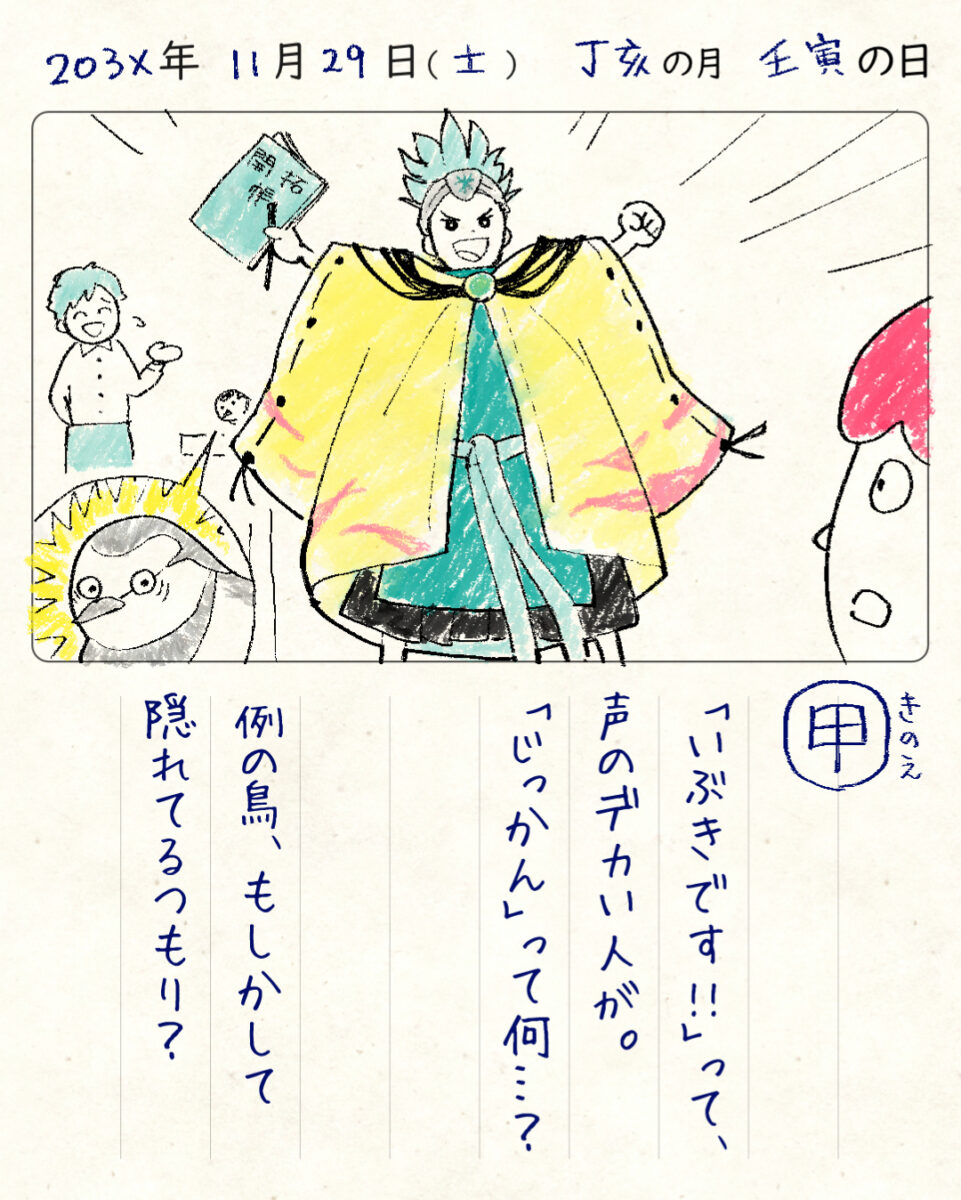 203X年 11月29日(土) 丁亥の月 壬寅の日
開拓
帳
甲
きのえ
「いぶきです!!」って、
声のデカい人が。
「じっかん」って何…?
例の鳥、もしかして
隠れてるつもり?